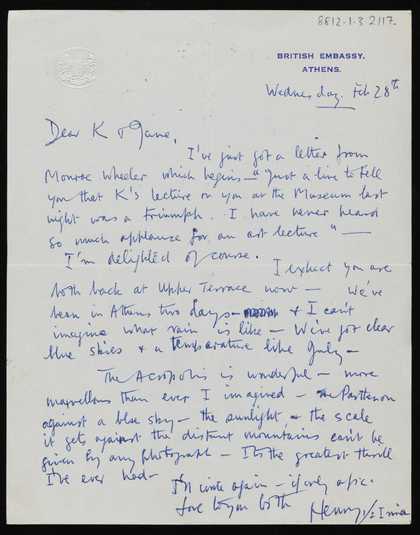 8812-1-3 2117.
BRITISH EMBASSY.
ATHENS.
Wednesday. Feb 28th
Dear K & Jane,
I've just got a letter from
Monroe Wheeler which begins — "Just a line to tell
you that K's lecture on you at the Museum last
night was a triumph. I have never heard
so much applause for an art lecture" —
I'm delighted of course.
I expect you are
both back at Upper Terrace now — We've
been in Athens two days — & I can't
imagine what rain is like — We've got clear
blue skies & a temperature like July —
The Acropolis is wonderful — more
marvellous than ever I imagined — the Parthenon
against a blue sky — the sunlight, & the scale
it gets against the distant mountains can't be
given by any photograph — It's the greatest thrill
I've ever had —
I'll write again — if only a p.c.
Love to you both
Henry & Irina